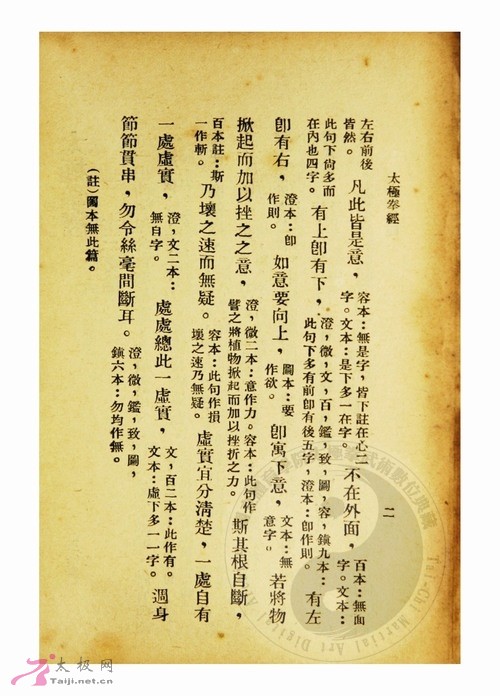 太極拳經
二
左右前後皆然。凡此皆是意，容本：無是字，皆下註在心二字。文本：是下多一在字。不在外面，百本：無面字。文本：
此句下尙多而在內也四字。有上卽有下，澄，微，文，百，鑑，致，圖，容，鎮九本：此句下多有前卽有後五字，澄本：卽作則。有左
卽有右，澄本：卽作則。如意要向上，圖本：要作欲。卽寓下意，文本：無意字。若將物
掀起而加以挫之之意，澄，微二本：意作力。容本：此句作譬之將植物掀起而加以挫折之力。斯其根自斷，
百本註：斯一作斬。乃壞之速而無疑。容本：此句作損壞之速乃無疑。虛實宜分清楚，一處自有
一處虛實，澄，文二本：無自字。處處總此一虛實，文，百二本：此作有。文本：虛下多一一字。週身
節節貫串，勿令絲毫間斷耳。澄，微，鑑，致，圖，鎮六本：勿均作無。
（註）圖本無此篇。
太极网
Taiji.net.cn